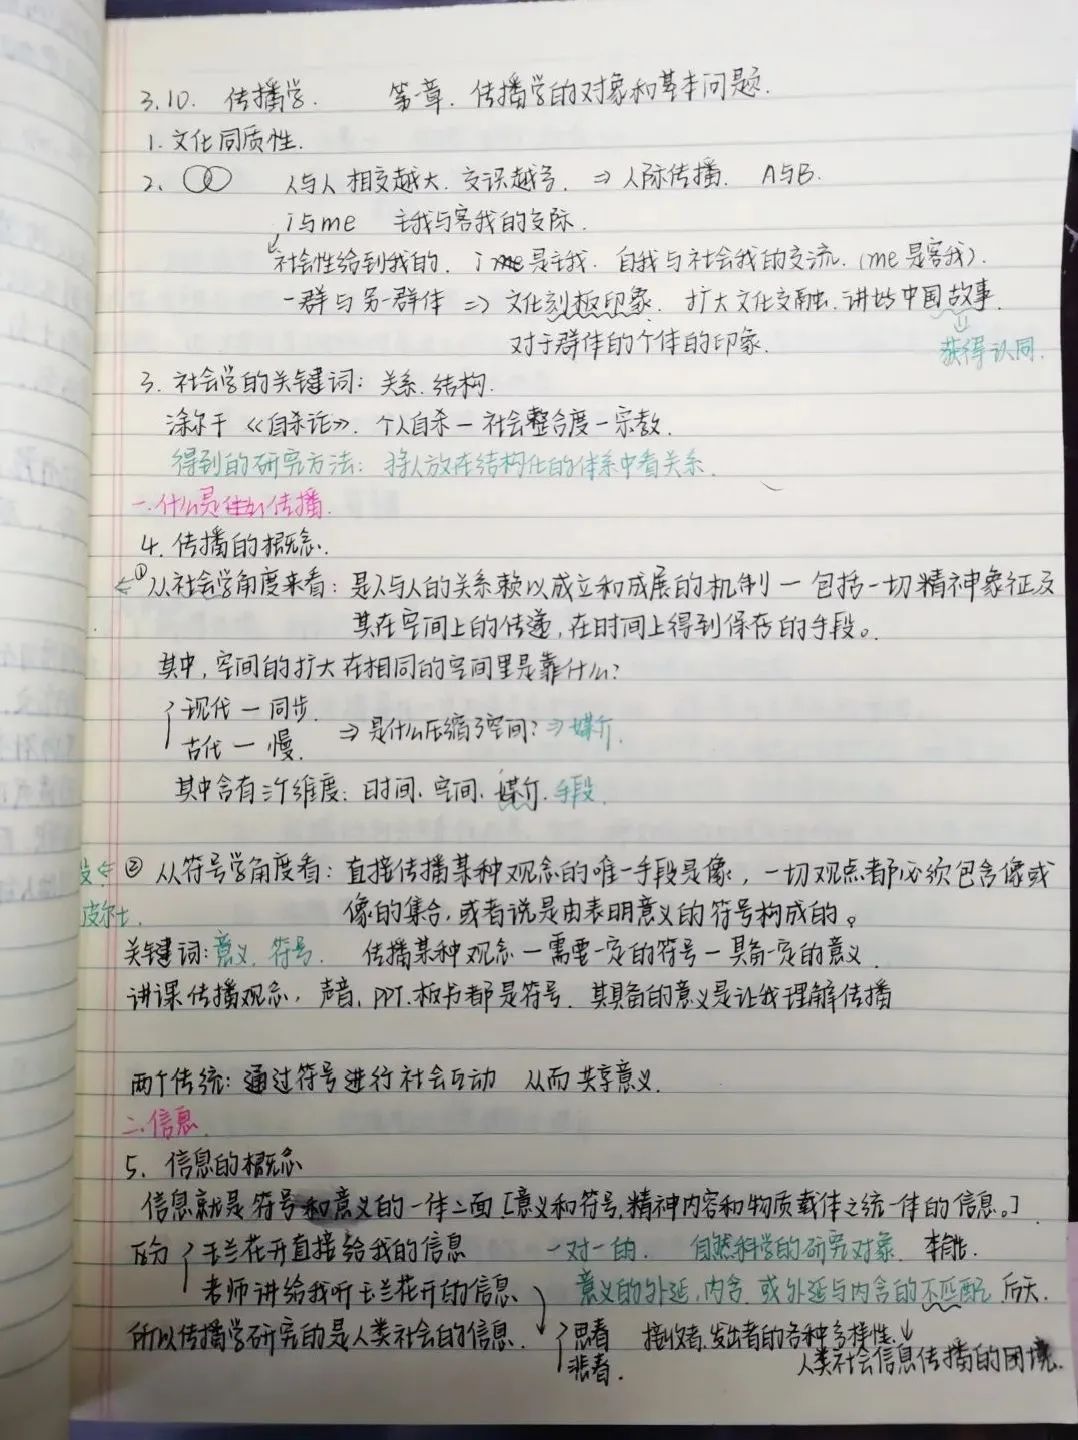 3.10. 传播学. 第一章. 传播学的对象和基本问题.
1. 文化同质性.
2. 人与人 相交越大. 交识越多. ⇒ 人际传播. A与B.
i与me 主我与客我的交际.
社会性给到我的. i 是主我. 自我与社会我的交流. (me是客我).
一群与另一群体 ⇒ 文化刻板印象. 扩大文化交融. 讲好中国故事.
对于群体的个体的印象. 获得认同.
3. 社会学的关键词: 关系. 结构.
涂尔干《自杀论》. 个人自杀 — 社会整合度 — 宗教.
得到的研究方法: 将人放在结构化的体系中看关系.
一. 什么是 传播.
4. 传播的概念.
← ① 从社会学角度来看: 是人与人的关系赖以成立和成展的机制 — 包括一切精神象征及
其在空间上的传递, 在时间上得到保存的手段。
其中, 空间的扩大在相同的空间里是靠什么?
现代 — 同步.
⇒ 是什么压缩了空间? ⇒ 媒介.
古代 — 慢.
其中含有三个维度: 时间、空间、媒介. 手段.
② 从符号学角度看: 直接传播某种观念的唯一手段是像, 一切观点都必须包含像或
皮尔士. 像的集合, 或者说是由表明意义的符号构成的。
关键词: 意义. 符号. 传播某种观念 — 需要一定的符号 — 具备一定的意义.
讲课传播观念, 声音、PPT、板书都是符号. 其具备的意义是让我理解传播
两个传统: 通过符号进行社会互动 从而共享意义.
二. 信息.
5. 信息的概念
信息就是符号和意义的一体二面 [意义和符号, 精神内容和物质载体之统一体的信息。]
区分 玉兰花开直接给我的信息 一对一的. 自然科学的研究对象.
老师讲给我听玉兰花开的信息. 意义的外延, 内含. 或外延与内含的不匹配. 后天.
所以传播学研究的是人类社会的信息. 思春 接收者, 发出者的各种多样性. ↓
悲春. 人类社会信息传播的困境.